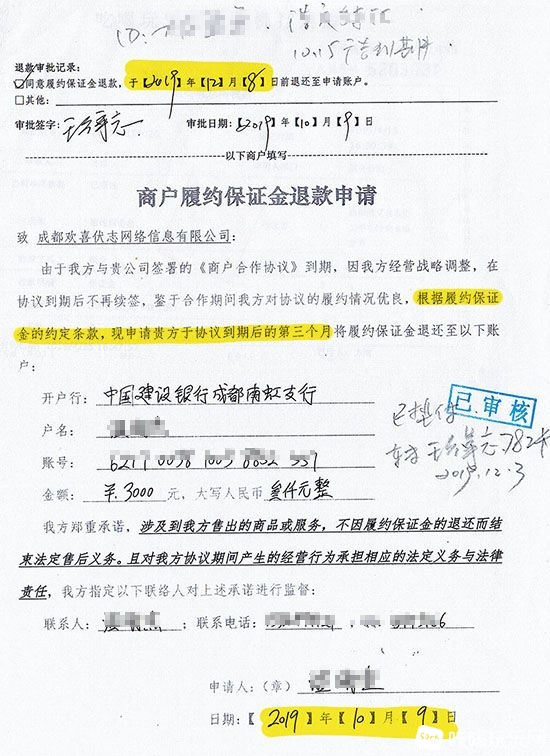 10.15
退款审批记录:
☑同意履约保证金退款,于【2019】年【12】月【8】日前退还至申请账户。
□其他:
审批签字: 审批日期:【2019】年【10】月【9】日
以下商户填写
商户履约保证金退款申请
致 成都欢喜优志网络信息有限公司:
由于我方与贵公司签署的《商户合作协议》到期,因我方经营战略调整,在
协议到期后不再续签,鉴于合作期间我方对协议的履约情况优良,根据履约保证
金的约定条款,现申请贵方于协议到期后的第三个月将履约保证金退还至以下账
户:
开户行:中国建设银行成都南虹支行
已审核
户名:
账号:
2019.12.3
金额:¥.3000 元,大写人民币 叁仟元整
我方郑重承诺,涉及到我方售出的商品或服务,不因履约保证金的退还而结
束法定售后义务。且对我方协议期间产生的经营行为承担相应的法定义务与法律
责任,我方指定以下联络人对上述承诺进行监督:
联系人: ;联系电话:
申请人:(章)
日期:【2019】年【10】月【9】日